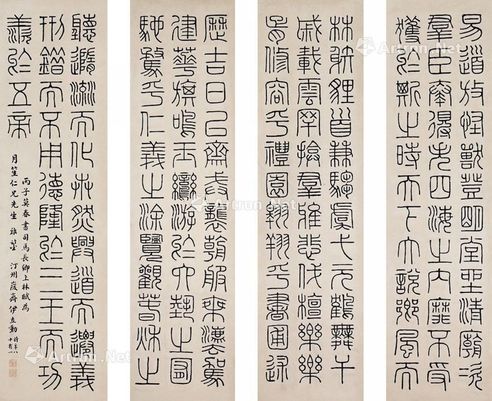 歷吉日已齋戒襲朝服乘法駕
建華旗鳴玉鸞游於六藝之囿
馳騖乎仁義之涂覽觀春秋之
林射貍首兼騶虞弋玄鶴舞干
戚載雲罕揜羣雅悲伐檀樂樂
胥修容乎禮園翱翔乎書圃述
易道放怪獸登明堂坐清廟次
羣臣奏得失四海之內靡不受
獲於斯之時天下大說鄉風而
聽隨流而化卉然興道而遷義
刑錯而不用德隆於三王而功
羨於五帝
丙子莫春書司馬長卿上林賦為
月笙仁兄先生雅鑒 汀州峻齋伊立勳